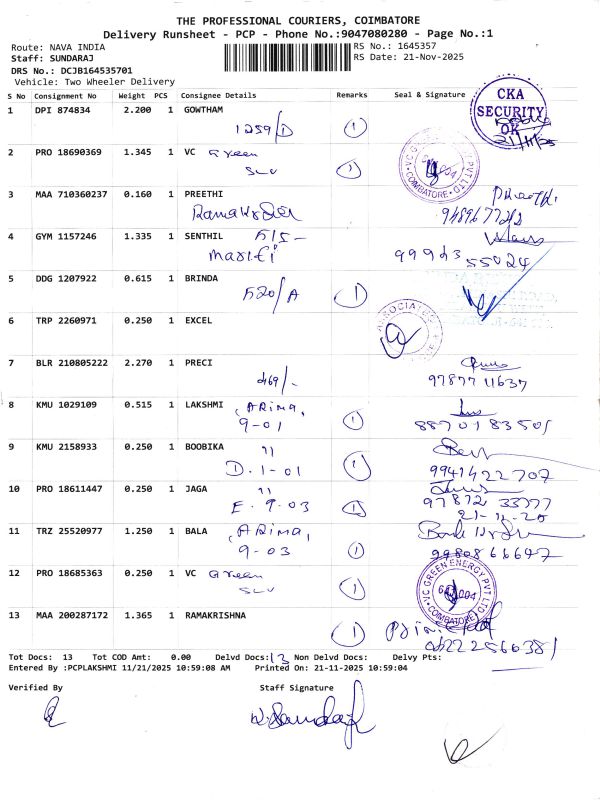 THE PROFESSIONAL COURIERS, COIMBATORE
Delivery Runsheet - PCP - Phone No.:9047080280 - Page No.:1
Route: NAVA INDIA
RS No.: 1645357
Staff: SUNDARAJ
RS Date: 21-Nov-2025
DRS No.: DCJB164535701
Vehicle: Two Wheeler Delivery
S No Consignment No Weight PCS Consignee Details Remarks Seal & Signature
1 DPI 874834 2.200 1 GOWTHAM
1259/D 1
CKA SECURITY OK
2 PRO 18690369 1.345 1 VC Green
SLV 1
VC GREEN PVT LTD COIMBATORE
3 MAA 710360237 0.160 1 PREETHI
4 GYM 1157246 1.335 1 SENTHIL A15-
99943 55024
5 DDG 1207922 0.615 1 BRINDA
A20/A 1
6 TRP 2260971 0.250 1 EXCEL
ASSOCIATE
7 BLR 210805222 2.270 1 PRECI
469/-
97877 11637
8 KMU 1029109 0.515 1 LAKSHMI , ARIMA,
9-01 1
88701 83501
9 KMU 2158933 0.250 1 BOOBIKA "
D.1-01 1
99414 22707
10 PRO 18611447 0.250 1 JAGA "
E.9.03 1
97872 33777
11 TRZ 25520977 1.250 1 BALA , ARIMA,
9-03 1
99808 66647
12 PRO 18685363 0.250 1 VC Green
SLV 1
VC GREEN ENERGY PVT LTD COIMBATORE
13 MAA 200287172 1.365 1 RAMAKRISHNA
1
Tot Docs: 13 Tot COD Amt: 0.00 Delvd Docs: 13 Non Delvd Docs: Delvy Pts:
Entered By :PCPLAKSHMI 11/21/2025 10:59:08 AM Printed On: 21-11-2025 10:59:04
Verified By Staff Signature